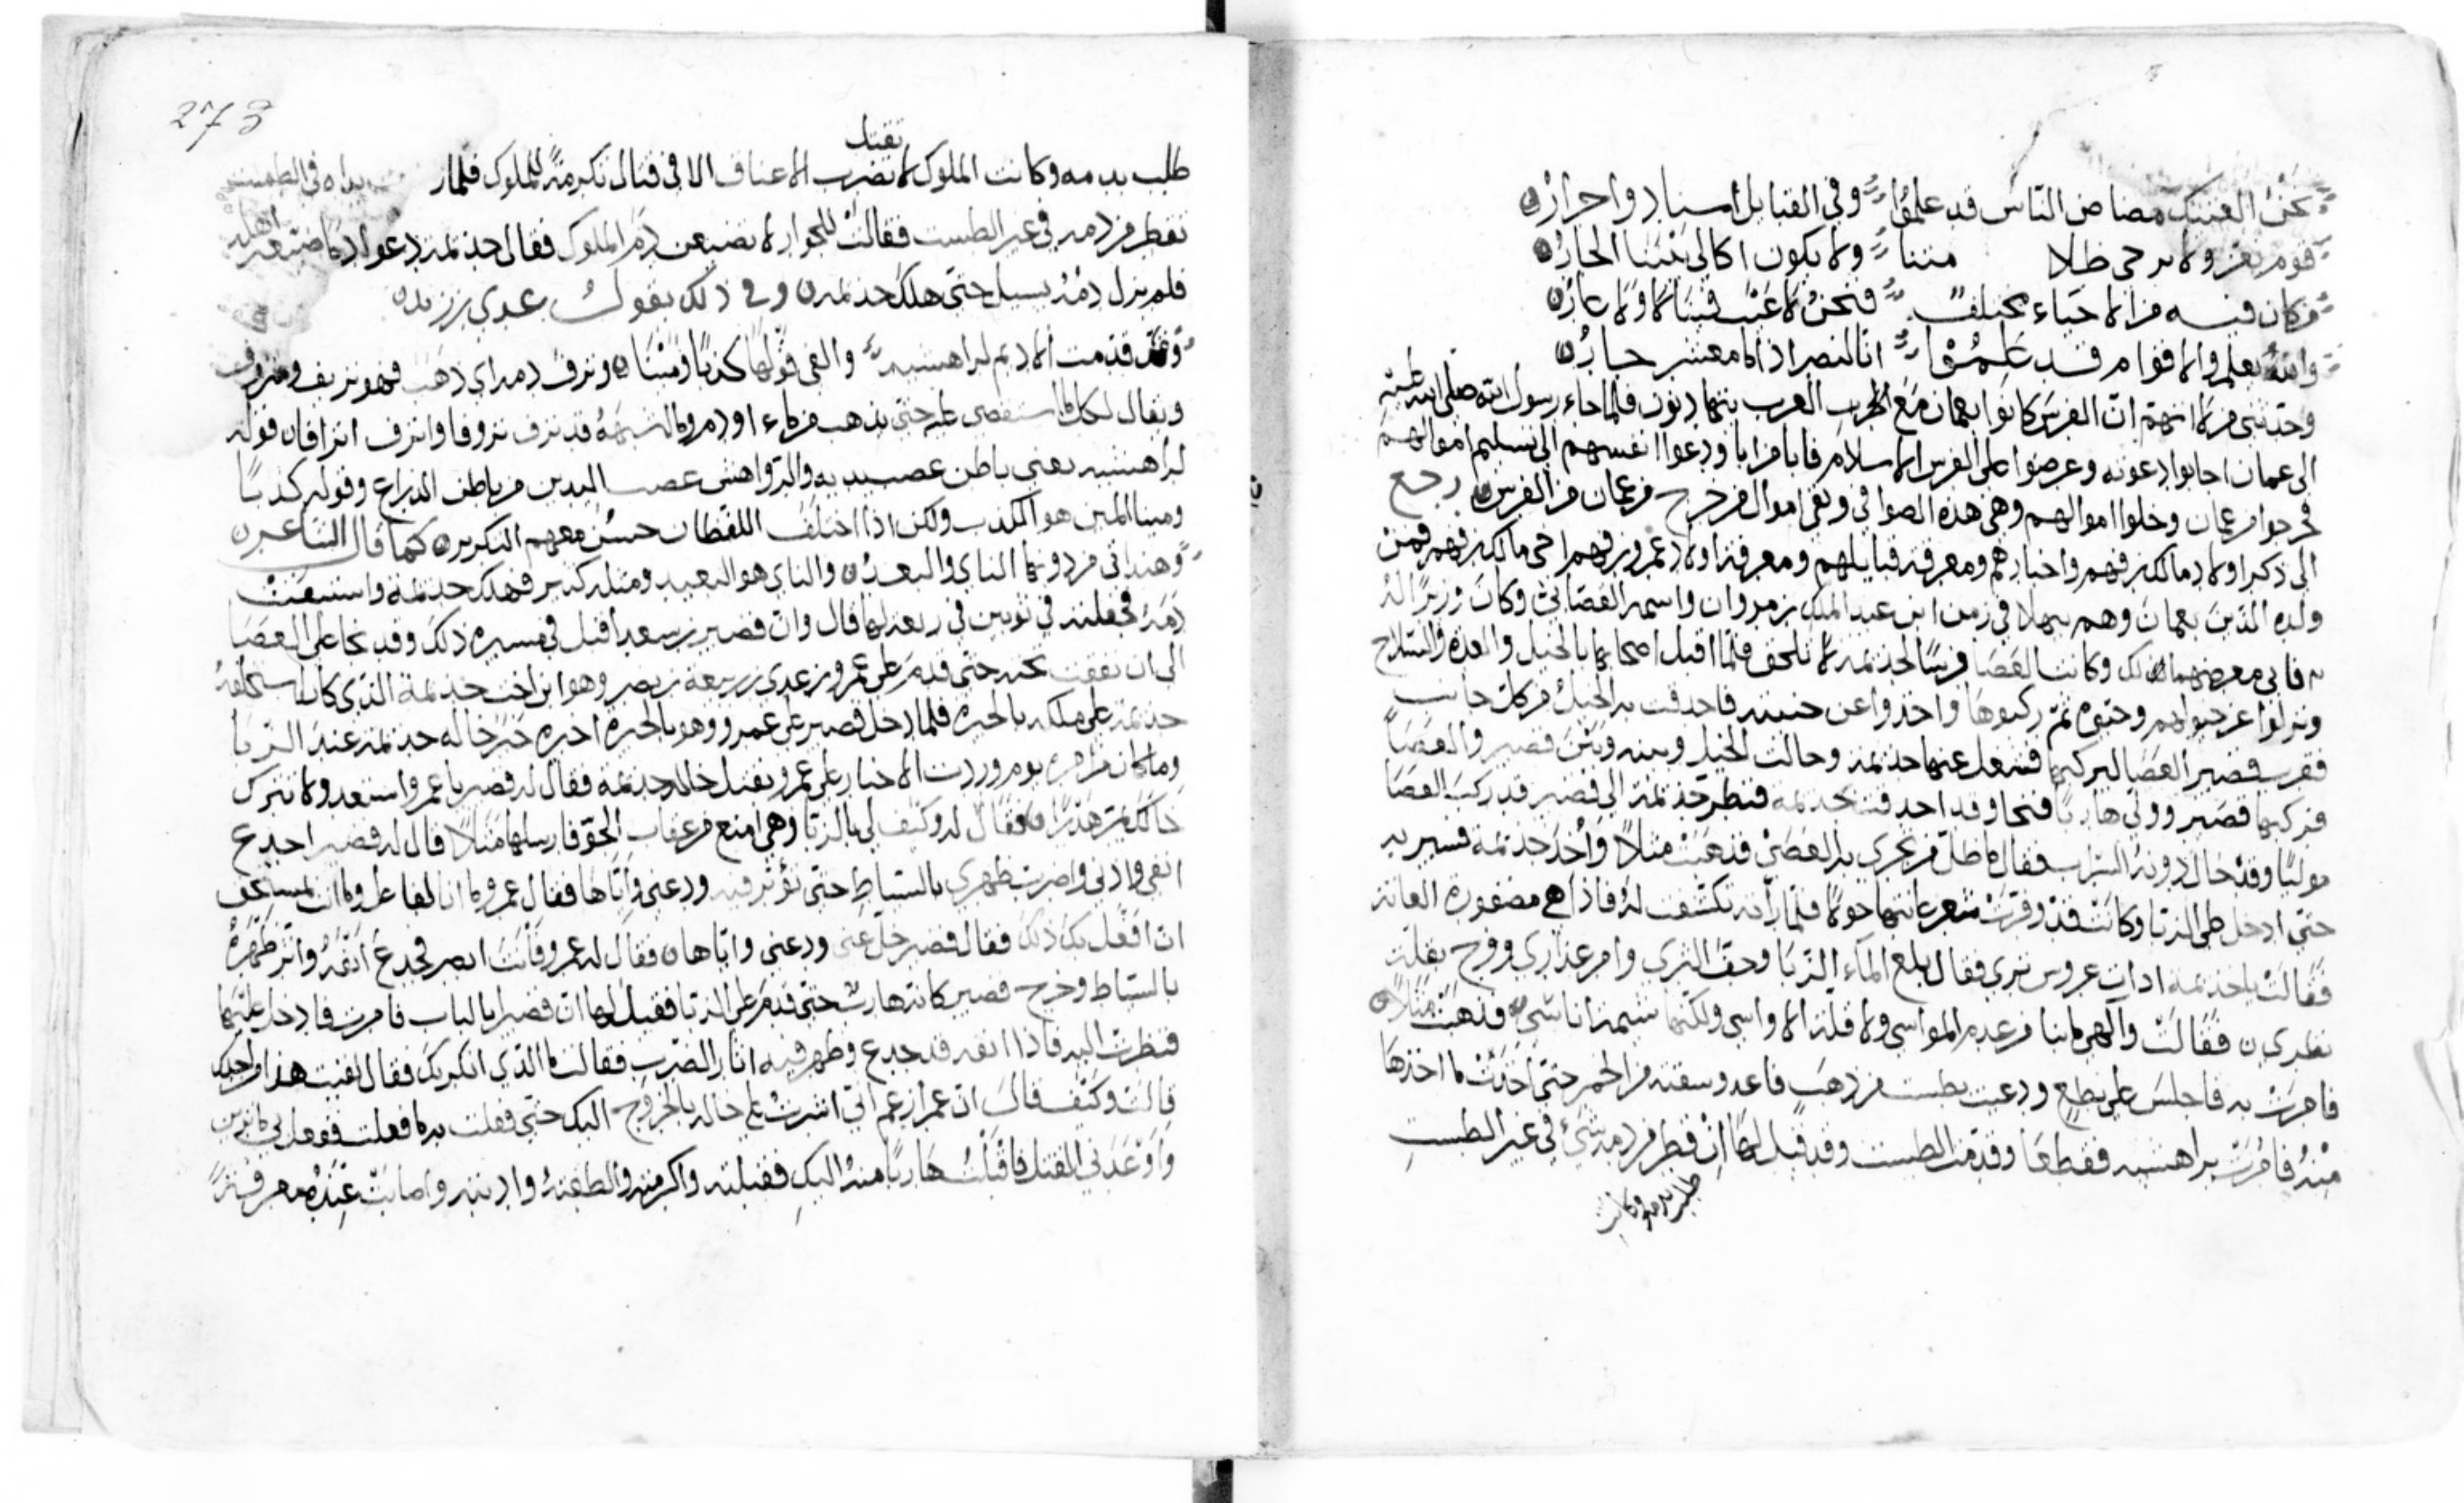 نحن العتيك مصاص الناس قد علموا وفي القبايل اسياد واحرار
قوم نعز ولا يرجى ظلا مننا ولا يكون اكالى بيننا الجار
من كان فيه من الاحياء مختلف فنحن لا عيب فينا لا ولا عار
والله يعلم والاقوام قد علموا انا لنصر اذا ما معشر جاروا
وحدثني من لا اتهم ان الفرس كانوا بعمان مع العرب بينهما ديون فلما جاء رسول الله صلى الله عليه
الى عمان اجابوا دعوته وعرضوا على الفرس الاسلام فابا من ابا ودعوا انفسهم الى تسليم اموالهم
فخرجوا من عمان وخلوا اموالهم وهي هذه الصوافي وبقى اموال من خرج من عمان من الفرس رجع
الى ذكر اولاد مالك بن فهم واخبارهم ومعرفة قبايلهم ومعرفة اولاد عمرو بن فهم اخى مالك بن فهم فمن
ولده الذين بعمان وهم بهلا في زمن ابن عبد الملك بن مروان واسمه وكان وزيرا له
به فابى معرضهما لذلك وكانت العصا فرسا لجذيمة لا تلحق فلما اقبل اصحابها بالخيل والعدة والسلاح
ونزلوا عن خيولهم وحيوه ثم ركبوها واخذوا عن جنبيه فاحدقت به الخيل من كل جانب
فقرب قصير العصا ليركبها فشغل عنها جذيمة وحالت الخيل وبينه وبين قصير والعصا
فركبها قصير وولى هاربا فنجا وقد احدقت بجذيمة فنظر جذيمة الى قصير قد ركب العصا
موليا وقد حال دونه السراب فقال ما ظل من تجرى به العصى فذهبت مثلا واخذ جذيمة فسير به
حتى ادخل على الزبا وكانت قد وفرت شعر عانتها حولا فلما راته تكشفت له فاذا هي مضفورة العانة
فقالت يا جذيمة اداب عروس ترى فقال بلغ الماء الزبا وحق الثرى وامر غدارى
بظرى فقالت والهى ما بنا من عدم المواسي ولا قلة الاواسى ولكنها شيمة اناسى فذهبت مثلا
فامرت به فاجلس على نطع ودعت بطست من ذهب فاعد وسقته من الخمر حتى اخذت ما اخذها
منه فامرت براهشيه فقطعا وقدمت الطست وقد قيل لها ان قطر من دمه شئ في غير الطست
طلب بدمه وكانت
273
تقتل
طلب بدمه وكانت الملوك لا تضرب الاعناق الا في قتال تكرمة للملوك فلما يداه في الطست
تقطر من دمه في غير الطست فقالت للجوار لا تضيعن دم الملوك فقال جذيمة دعوا دما ضيعه اهله
فلم يزل دمه يسيل حتى هلك جذيمة وفي ذلك يقول عدى بن زيد
وقد قدمت الاديم لراهشيه والفى قولها كذبا ومينا ونزف دمه اى ذهب فهو نزيف ومنزوف
ويقال لكل ما استقصى عليه حتى يذهب من ماء او دم قد نزف نزوفا وانزف انزافا قوله
لراهشيه يعنى باطن عصب يديه والرواهش عصب اليدين من باطن الذراع وقوله كذبا
ومينا المين هو الكذب ولكن اذا اختلف اللفظان حسن معهم التكرير كما قال الشاعر
وهند اتى من دونها الناى والبعد والناى هو البعيد ومثله كثير فهلك جذيمة واستبقت
دمه فجعلته في ثوبين في ربعة لها قال وان قصير بن سعد اقبل في مسيره ذلك وقد نجا على العصا
الى ان نفقت تحته حتى قدم على عمرو بن عدى بن ربيعة بن نصر وهو ابن اخت جذيمة الذى كان استخلفه
جذيمة على ملكه بالحيره فلما دخل قصير على عمرو وهو بالحيرة اخبره خبر خاله جذيمة عند الزبا
وما كان من امره يوم وردت الاخبار على عمرو بقتل خاله جذيمة فقال له قصير يا عمرو استعد ولا تترك
خالك هدرا فقال له وكيف لي بالزبا وهي امنع من عقاب الجو فارسلها مثلا قال له قصير اجدع
انفى واذنى واضرب ظهرى بالسياط حتى تؤثر فيه ودعنى واياها فقال عمرو ما انا لفاعل وما انت لمستحق
ان افعل بك ذلك فقال قصير خل عنى ودعنى واياها فقال له عمرو فانت ابصر فجدع انفه واثر ظهره
بالسياط وخرج قصير كانه هارب حتى قدم على الزبا فقيل لها ان قصيرا بالباب فامرت فادخل عليها
فنظرت اليه فاذا انفه قد جدع وظهر فيه اثار الضرب فقالت ما الذى انكر بك فقال لقيت هذا من اجلك
قالت وكيف قال ان عمرا زعم انى اشرت على خاله بالخروج اليك حتى فعلت به ما فعلت ففعل بى ما ترين
واوعدنى القتل فاقبلت هاربا منه اليك فقبلته واكرمته والطفته وادنته واصابت عنده معرفة